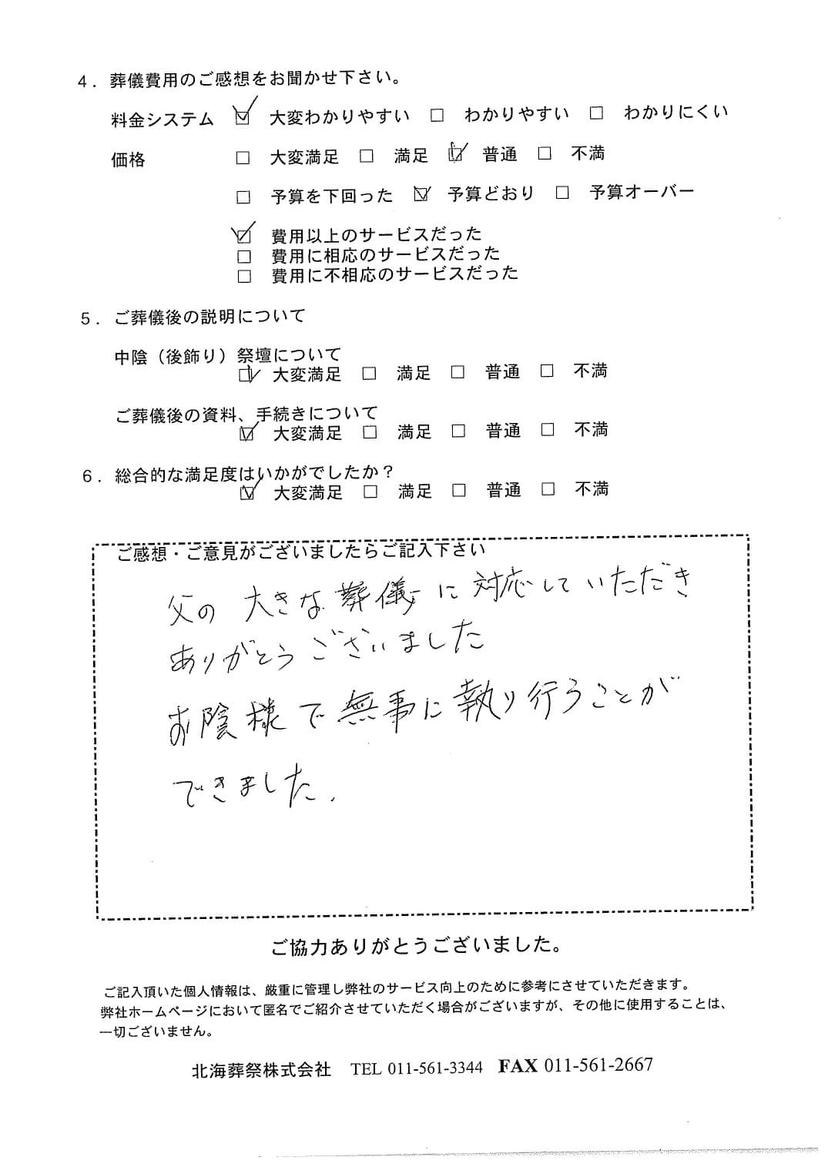 4．葬儀費用のご感想をお聞かせ下さい。
料金システム ☑ 大変わかりやすい □ わかりやすい □ わかりにくい
価格 □ 大変満足 □ 満足 ☑ 普通 □ 不満
□ 予算を下回った ☑ 予算どおり □ 予算オーバー
☑ 費用以上のサービスだった
□ 費用に相応のサービスだった
□ 費用に不相応のサービスだった
5．ご葬儀後の説明について
中陰（後飾り）祭壇について
☑ 大変満足 □ 満足 □ 普通 □ 不満
ご葬儀後の資料、手続きについて
☑ 大変満足 □ 満足 □ 普通 □ 不満
6．総合的な満足度はいかがでしたか？
☑ 大変満足 □ 満足 □ 普通 □ 不満
ご感想・ご意見がございましたらご記入下さい
父の大きな葬儀に対応していただき
ありがとうございました
お陰様で無事に執り行うことが
できました．
ご協力ありがとうございました。
ご記入頂いた個人情報は、厳重に管理し弊社のサービス向上のために参考にさせていただきます。
弊社ホームページにおいて匿名でご紹介させていただく場合がございますが、その他に使用することは、
一切ございません。
北海葬祭株式会社 TEL 011-561-3344 FAX 011-561-2667